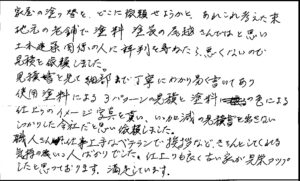 家屋の塗り替を、どこに依頼せようかと、あれこれ考えた末
地元の老舗で塗料、塗装の鳥越さんではと思い
土木建築関係の人に評判を尋ねたら、悪くないので
見積を依頼しました。
見積書を見て細部まで丁寧にわかり易く書いてあり
使用塗料による3パターンの見積と塗料の色による
仕上りのイメージ写真を貰い、いい加減の見積書を出さない
しっかりした会社だと思い依頼しました。
職人さんも仕事上手なベテランで挨拶など、きちんとしてくれる
気持の良い人ばかりでした。仕上りも良く古い家が見栄アップ
したと思っております、満足しています。